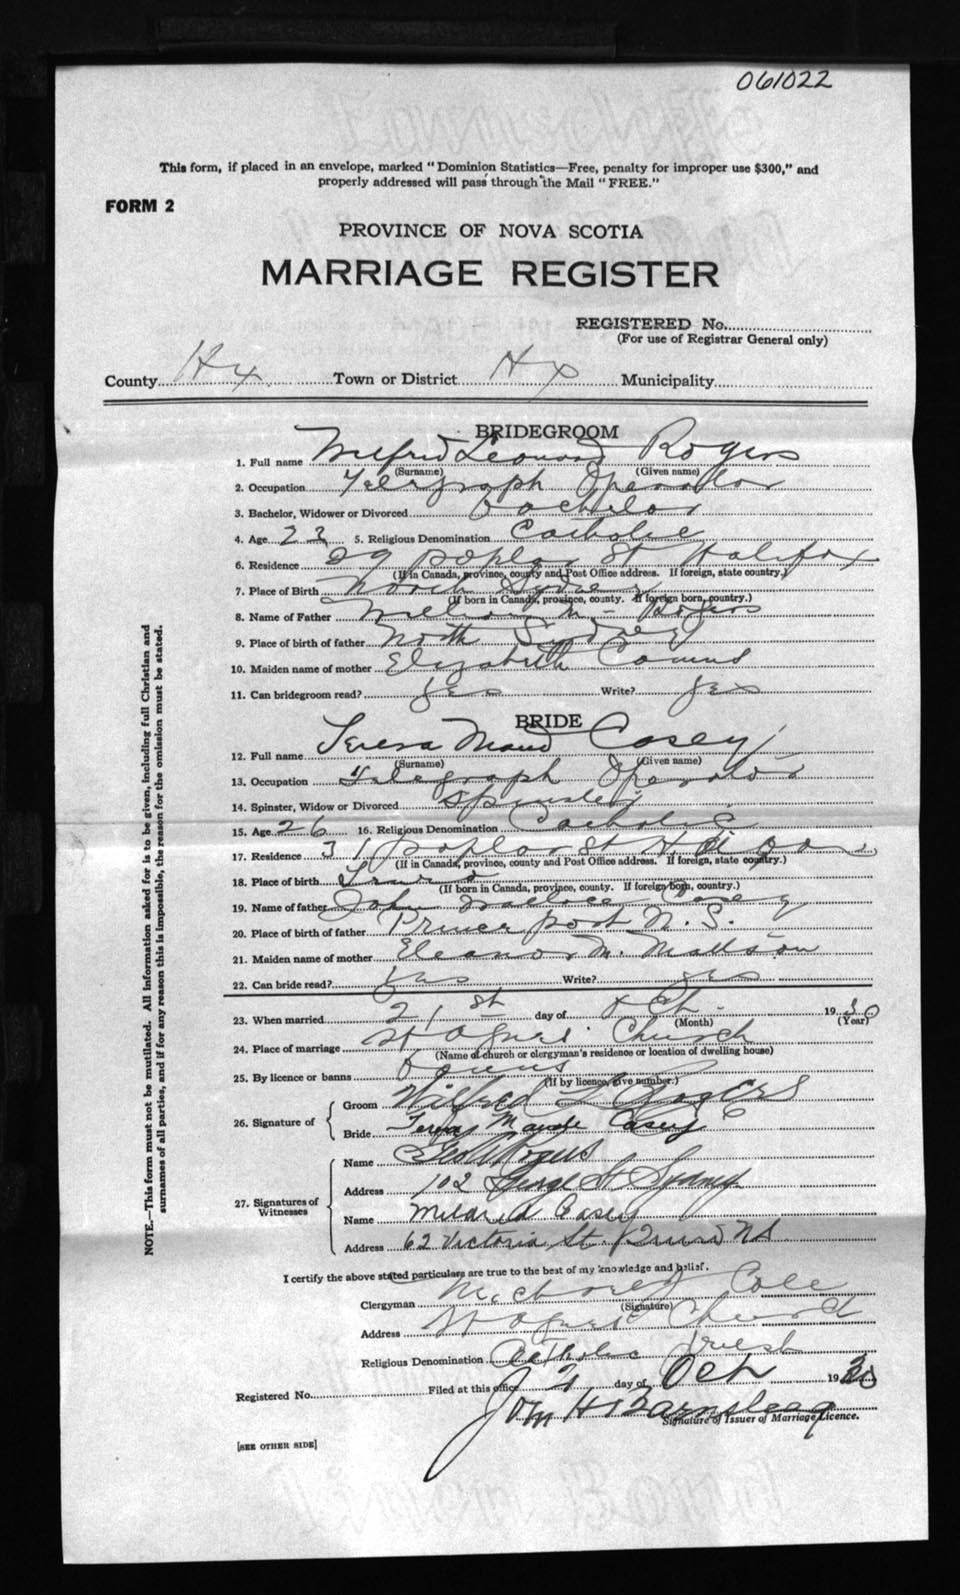 061022
This form, if placed in an envelope, marked "Dominion Statistics—Free, penalty for improper use $300," and
properly addressed will pass through the Mail "FREE."
FORM 2
PROVINCE OF NOVA SCOTIA
MARRIAGE REGISTER
REGISTERED No.
(For use of Registrar General only)
County Hx. Town or District Hx Municipality
BRIDEGROOM
1. Full name Wilfred Leonard Rogers
(Surname) (Given name)
2. Occupation Telegraph Operator
3. Bachelor, Widower or Divorced bachelor
4. Age 23 5. Religious Denomination Catholic
6. Residence 29 poplar St Halifax
(If in Canada, province, county and Post Office address. If foreign, state country.)
7. Place of Birth North Sydney
(If born in Canada, province, county. If foreign born, country.)
8. Name of Father William Rogers
9. Place of birth of father North Sydney
10. Maiden name of mother Elizabeth
11. Can bridegroom read? yes Write? yes
BRIDE
12. Full name Teresa Maud Casey
(Surname) (Given name)
13. Occupation Telegraph Operator
14. Spinster, Widow or Divorced Spinster
15. Age 26 16. Religious Denomination Catholic
17. Residence 31 poplar St Halifax
(If in Canada, province, county and Post Office address. If foreign, state country.)
18. Place of birth Truro
(If born in Canada, province, county. If foreign born, country.)
19. Name of father John Wallace Casey
20. Place of birth of father port N.S.
21. Maiden name of mother Eleanor M. Mattson
22. Can bride read? yes Write? yes
23. When married 21st day of Oct. 1930
(Month) (Year)
24. Place of marriage St Agnes Church
(Name of church or clergyman's residence or location of dwelling house)
25. By licence or banns banns
(If by licence, give number.)
26. Signature of
Groom Wilfred L Rogers
Bride Teresa Maude Casey
27. Signatures of Witnesses
Name Geo Rogers
Address 102 George St Sydney
Name Mildred Casey
Address 62 Victoria St. Truro NS
I certify the above stated particulars are true to the best of my knowledge and belief.
Clergyman Cole
(Signature)
Address St Agnes Church
Religious Denomination Catholic Priest
Registered No. Filed at this office day of Oct 1930
Signature of Issuer of Marriage Licence.
[SEE OTHER SIDE]
NOTE.—This form must not be mutilated. All information asked for is to be given, including full Christian and
surnames of all parties, and if for any reason this is impossible, the reason for the omission must be stated.